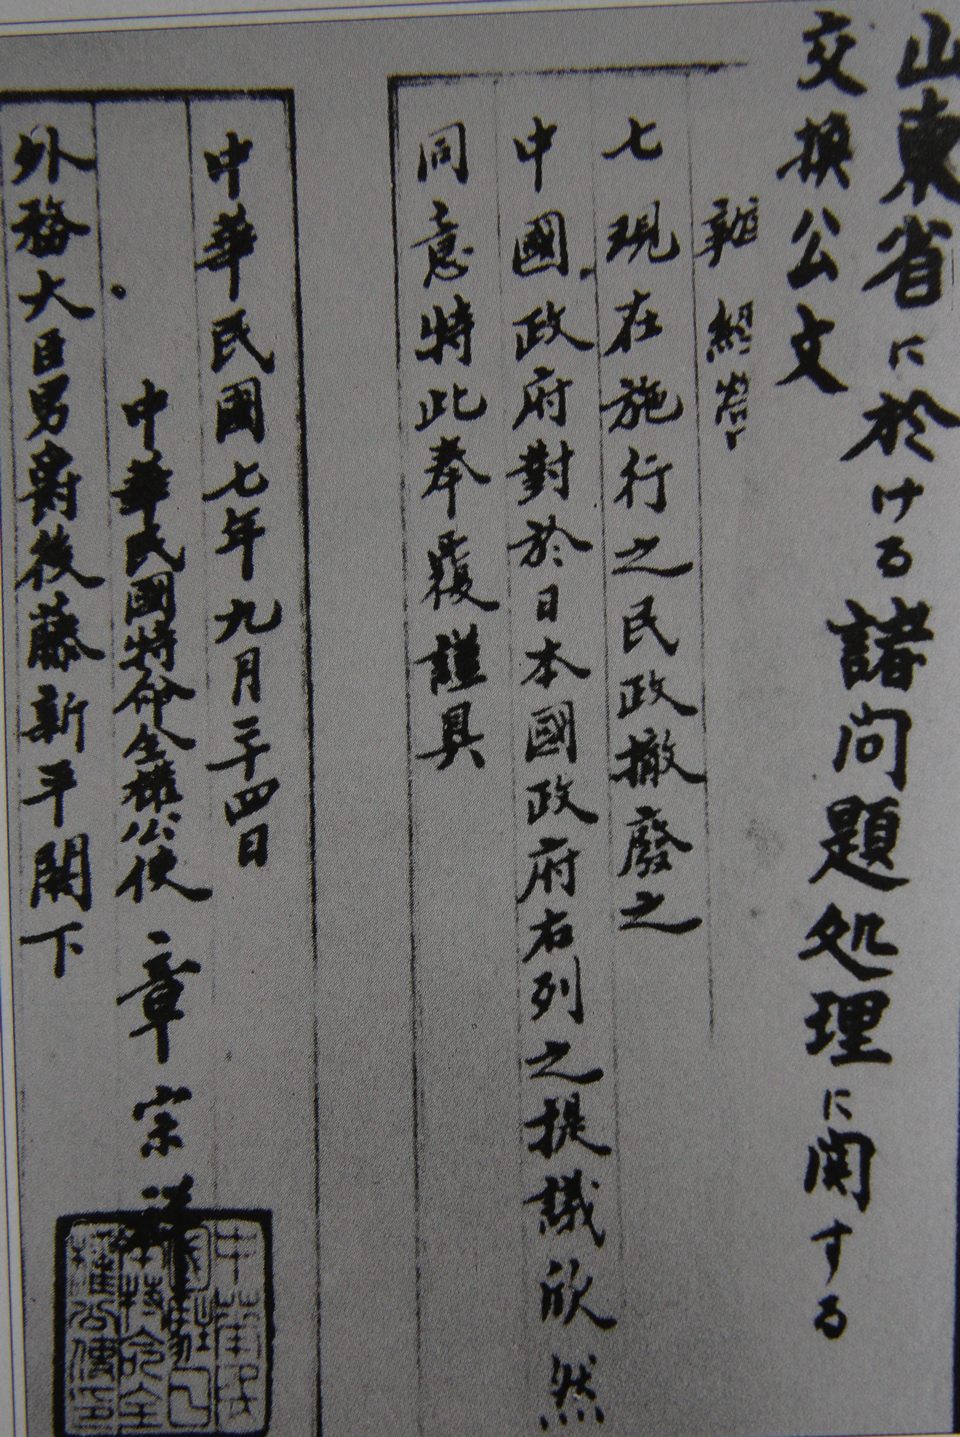 山東省に於ける諸問題処理に関する
交換公文
經營
七現在施行之民政撤廢之
中國政府對於日本國政府右列之提議欣然
同意特此奉覆謹具
中華民國七年九月二十四日
中華民國特命全權公使 章宗祥
外務大臣男爵後藤新平閣下